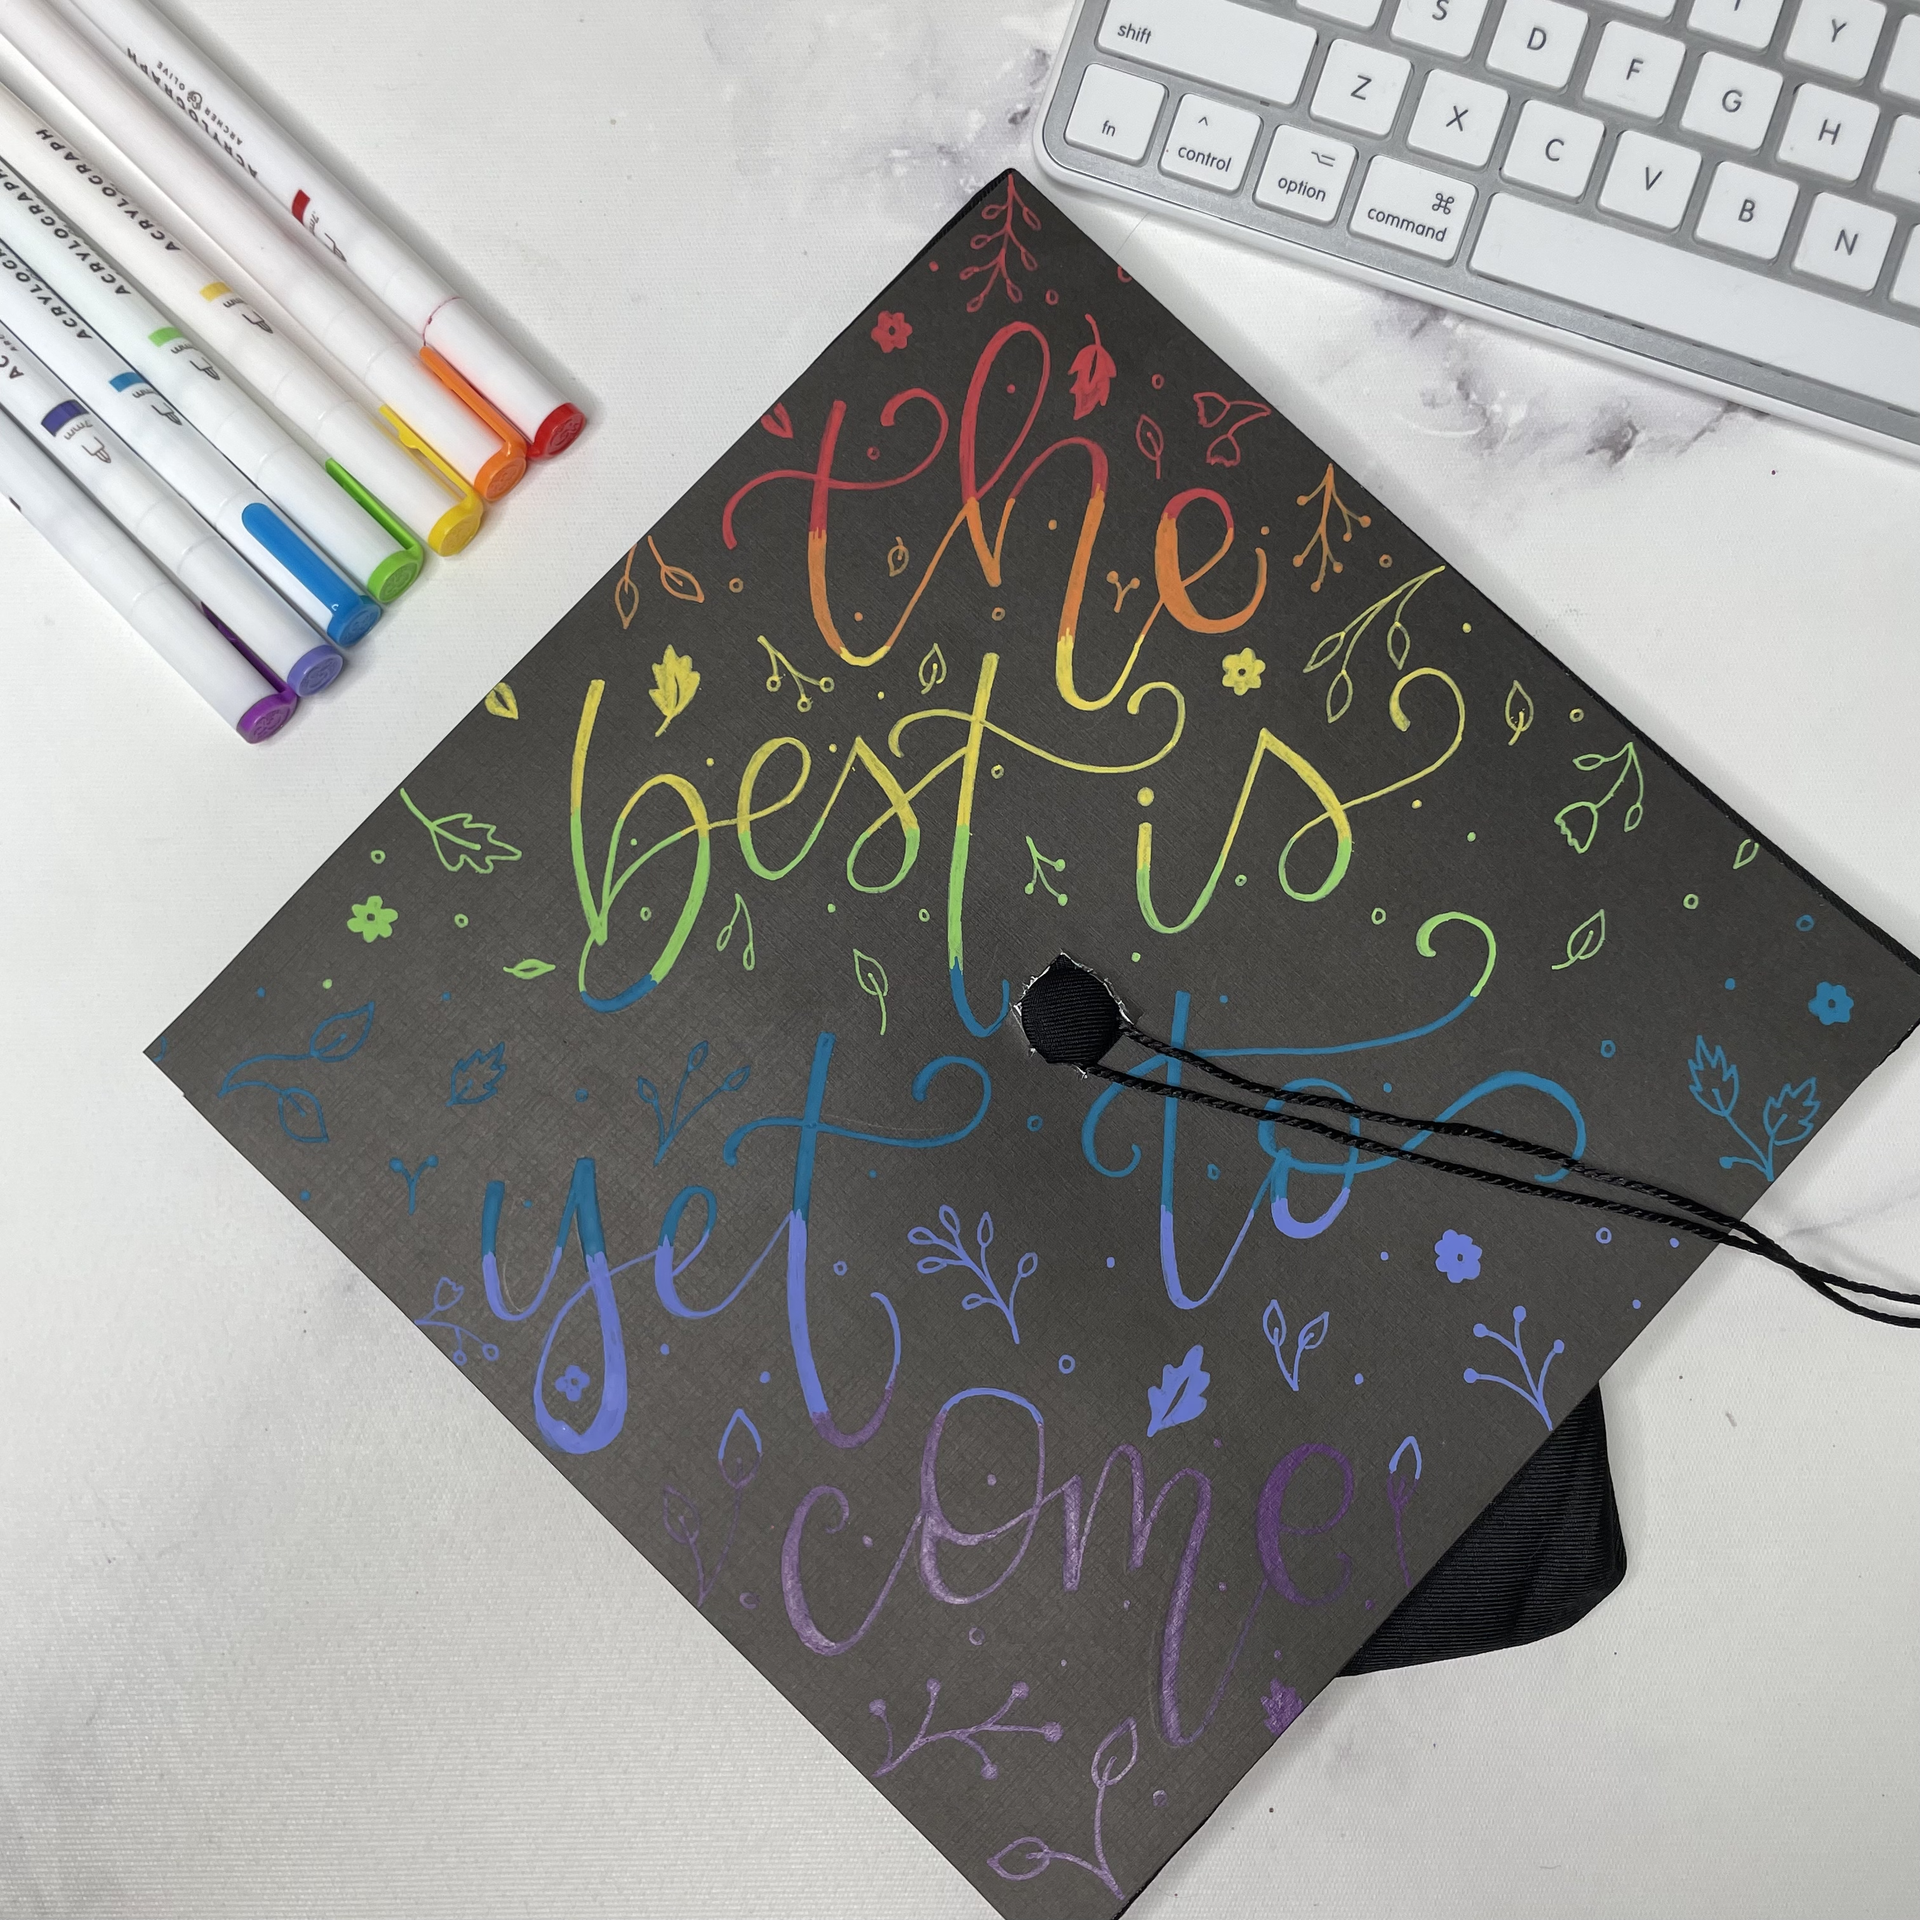 the
best is
yet to
come
ARCHER & OLIVE
ACRYLOGRAPH
ACRYLOGRAPH
ACRYLOGRAPH
ACRYLOGRAPH
S D F G H
shift Z X C V B N
fn ^ control ⌥ option ⌘ command
Y